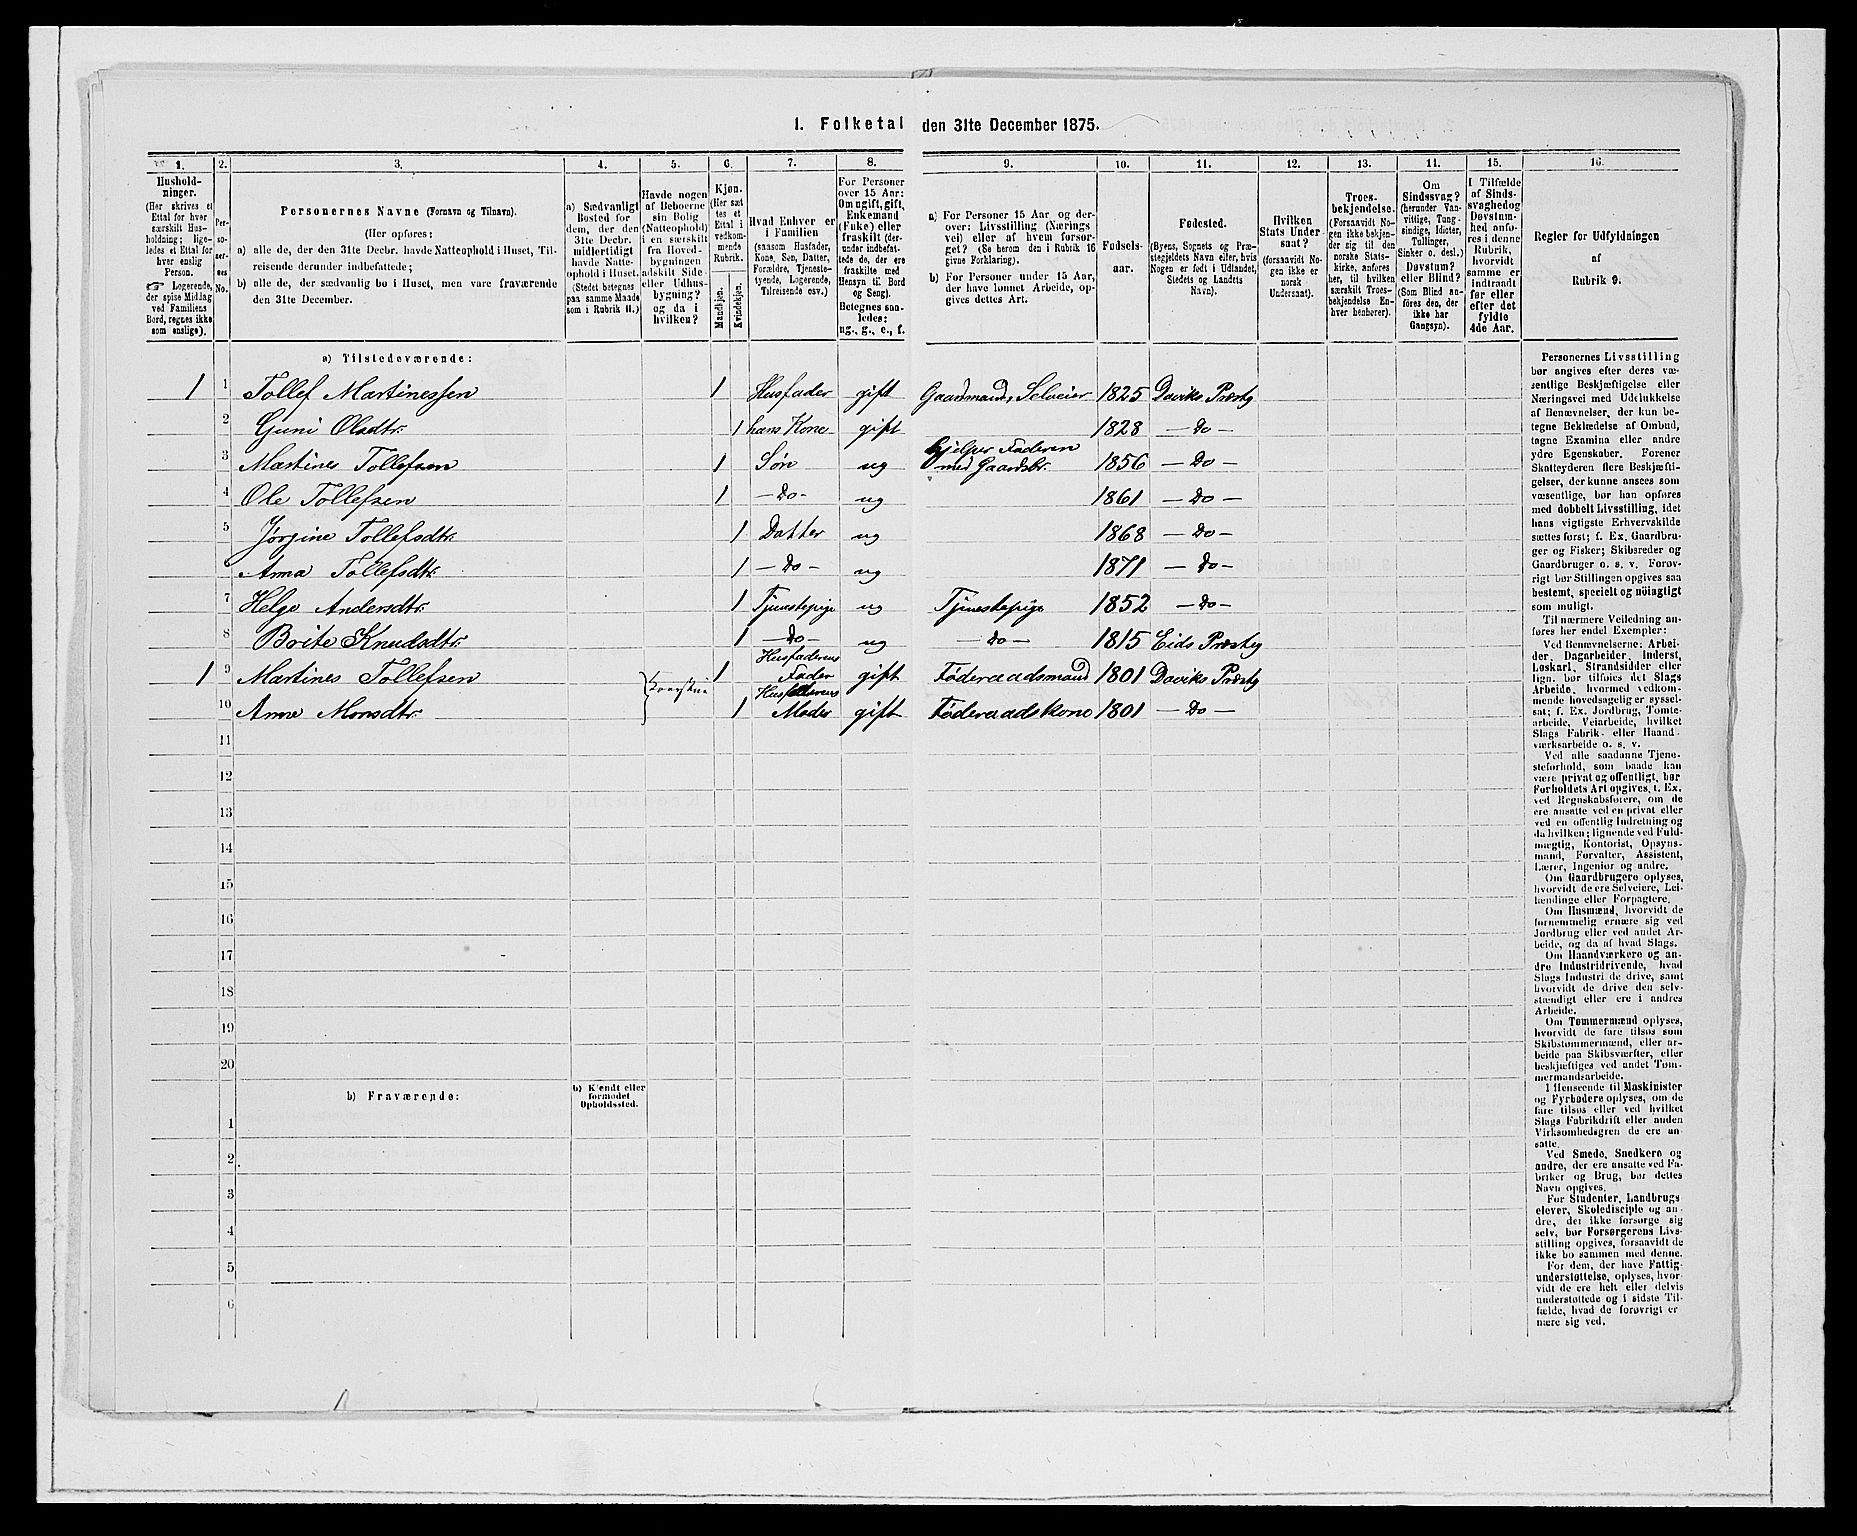 1. Folketal den 31te December 1875.
1. 2. 3. 4. 5. 6. 7. 8. 9. 10. 11. 12. 13. 11. 15. 16.
Hushold-
ninger.
(Her skrives et
Ettal for hver
særskilt Hus-
holdning; lige-
ledes et Ettal for
hver enslig
Person.
Logerende,
der spise Middag
ved Familiens
Bord, regnes ikke
som enslige).
Per-
so-
ner-
nes
No.
Personernes Navne (Fornavn og Tilnavn).
(Her opføres:
a) alle de, der den 31te Decbr. havde Natteophold i Huset, Til-
reisende derunder indbefattede;
b) alle de, der sædvanlig bo i Huset, men vare fraværende
den 31te December.
a) Sædvanligt
Bosted for
dem, der den
31te Decbr.
midlertidigt
havde Natte-
ophold i Huset.
(Stedet betegnes
paa samme Maade
som i Rubrik 11.)
Havde nogen
af Beboerne
sin Bolig
(Natteophold)
i en særskilt
fra Hoved-
bygningen
adskilt Side-
eller Udhus-
bygning?
og da i
hvilken?
Kjøn.
(Her sæt
tes et
Ettal i
vedkom-
mende
Rubrik.
Mandkjøn.
Kvindekjøn.
Hvad Enhver er
i Familien
(saasom Husfader,
Kone, Søn, Datter,
Forældre, Tjeneste-
tyende, Logerende,
Tilreisende osv.)
For Personer
over 15 Aar:
Om ugift, gift,
Enkemand
(Enke) eller
fraskilt (der-
under indbefat-
tede de, der ere
fraskilte med
Hensyn til Bord
og Seng).
Betegnes saa-
ledes:
ug., g., e., f.
a) For Personer 15 Aar og der-
over: Livsstilling (Nærings
vei) eller af hvem forsør-
get? (Se herom den i Rubrik 16
givne Forklaring).
b) For Personer under 15 Aar,
der have lønnet Arbeide, op-
gives dettes Art.
Fødsels-
aar.
Fødested.
(Byens, Sognets og Præ-
stegjeldets Navn eller, hvis
Nogen er født i Udlandet,
Stedets og Landets
Navn).
Hvilken
Stats Under-
saat?
(forsaavidt No-
gen ikke er
norsk
Undersaat).
Troes-
bekjendelse.
(Forsaavidt No-
gen ikke bekjen-
der sig til den
norske Stats-
kirke, anføres
her, til hvilken
særskilt Troes-
bekjendelse En-
hver henhører).
Om
Sindssvag?
(herunder Van-
vittige, Tung-
sindige, Idioter,
Tullinger,
Sinker o. desl.)
Døvstum?
eller Blind?
(Som Blind an-
føres den, der
ikke har
Gangsyn).
I Tilfælde
af Sinds-
svaghed og
Døvstum-
hed anfø-
res i denne
Rubrik,
hvorvidt
samme er
indtraadt
før eller
efter det
fyldte
4de Aar.
Regler for Udfyldningen
af
Rubrik 9.
a) Tilstedeværende:
1 1 Tollef Martinessen 1 Husfader gift Gaardmand, Selveier 1825 Daviks Præstg
2 Guni Olsdtr. 1 hans Kone gift 1828 — Do —
3 Martines Tollefsen 1 Søn ug hjelper Faderen
med Gaardsbr. 1856 — Do —
4 Ole Tollefsen 1 — Do — ug 1861 — Do —
5 Jørgine Tollefsdtr. 1 Datter ug 1868 — Do —
6 Anna Tollefsdtr. 1 — Do — ug 1871 — Do —
7 Helge Andersdtr. 1 Tjenestepige ug Tjenestepige 1852 — Do —
8 Brite Knudsdtr. 1 — Do — ug — Do — 1815 Eids Præstg
1 9 Martines Tollefsen 1 Husfaderens
Fader gift Føderaadsmand 1801 Daviks Præstg
10 Anne Monsdtr. 1 Husfaderens
Moder gift Føderaadskone 1801 — Do —
11
12
13
14
15
16
17
18
19
20
b) Fraværende:
b) Kjendt eller
formodet
Opholdssted.
1
2
3
4
5
6
Personernes Livsstilling
bør angives efter deres væ-
sentlige Beskjæftigelse eller
Næringsvei med Udelukkelse
af Benævnelser, der kun be-
tegne Beklædelse af Ombud,
tagne Examina eller andre
ydre Egenskaber. Forener
Skatteyderen flere Beskjæfti-
gelser, der kunne ansees som
væsentlige, bør han opføres
med dobbelt Livsstilling, idet
hans vigtigste Erhvervskilde
sættes først; f. Ex. Gaardbru-
ger og Fisker; Skibsreder og
Gaardbruger o. s. v. Forøv-
rigt bør Stillingen opgives saa
bestemt, specielt og nöiagtigt
som muligt.
Til nærmere Veiledning an-
føres her endel Exempler:
Ved Benævnelserne: Arbei-
der, Dagarbeider, Inderst,
Løskarl, Strandsidder eller
lign. bør tilføies det Slags
Arbeide, hvormed vedkom-
mende hovedsagelig er syssel-
sat; f. Ex. Jordbrug, Tomte-
arbeide, Veiarbeide, hvilket
Slags Fabrik- eller Haand-
værksarbeide o. s. v.
Ved alle saadanne Tjene-
steforhold, som baade kan
være privat og offentligt, bør
Forholdets Art opgives, t. Ex.
ved Regnskabsførere, om de
ere ansatte ved en privat eller
ved en offentlig Indretning og
da hvilken; lignende ved Fuld-
mægtig, Kontorist, Opsyns-
mand, Forvalter, Assistent,
Lærer, Ingeniør og andre.
Om Gaardbrugere oplyses,
hvorvidt de ere Selveiere, Lei-
lændinge eller Forpagtere.
Om Husmænd, hvorvidt de
fornemmelig ernære sig ved
Jordbrug eller ved andet Ar-
beide, og da af hvad Slags.
Om Haandværkere og an-
dre Industridrivende, hvad
Slags Industri de drive, samt
hvorvidt de drive den selv-
stændigt eller ere i andres
Arbeide.
Om Tømmermænd oplyses,
hvorvidt de fare tilsøs som
Skibstømmermænd, eller ar-
beide paa Skibsværfter, eller
beskjæftiges ved andet Tøm-
mermandsarbeide.
I Henseende til Maskinister
og Fyrbødere oplyses, om de
fare tilsøs eller ved hvilket
Slags Fabrikdrift eller anden
Virksomhedsgren de ere an-
satte.
Ved Smede, Snedkere og
andre, der ere ansatte ved Fa-
briker og Brug, bør dettes
Navn opgives.
For Studenter, Landbrugs
elever, Skoledisciple og an-
dre, der ikke forsørge sig
selv, bør Forsørgerens Livs-
stilling opgives, forsaavidt de
ikke bo sammen med denne.
For dem, der have Fattig-
understøttelse, oplyses, hvor-
vidt de ere helt eller delvis
understøttede og i sidste Til-
fælde, hvad de forøvrigt er
nære sig ved.